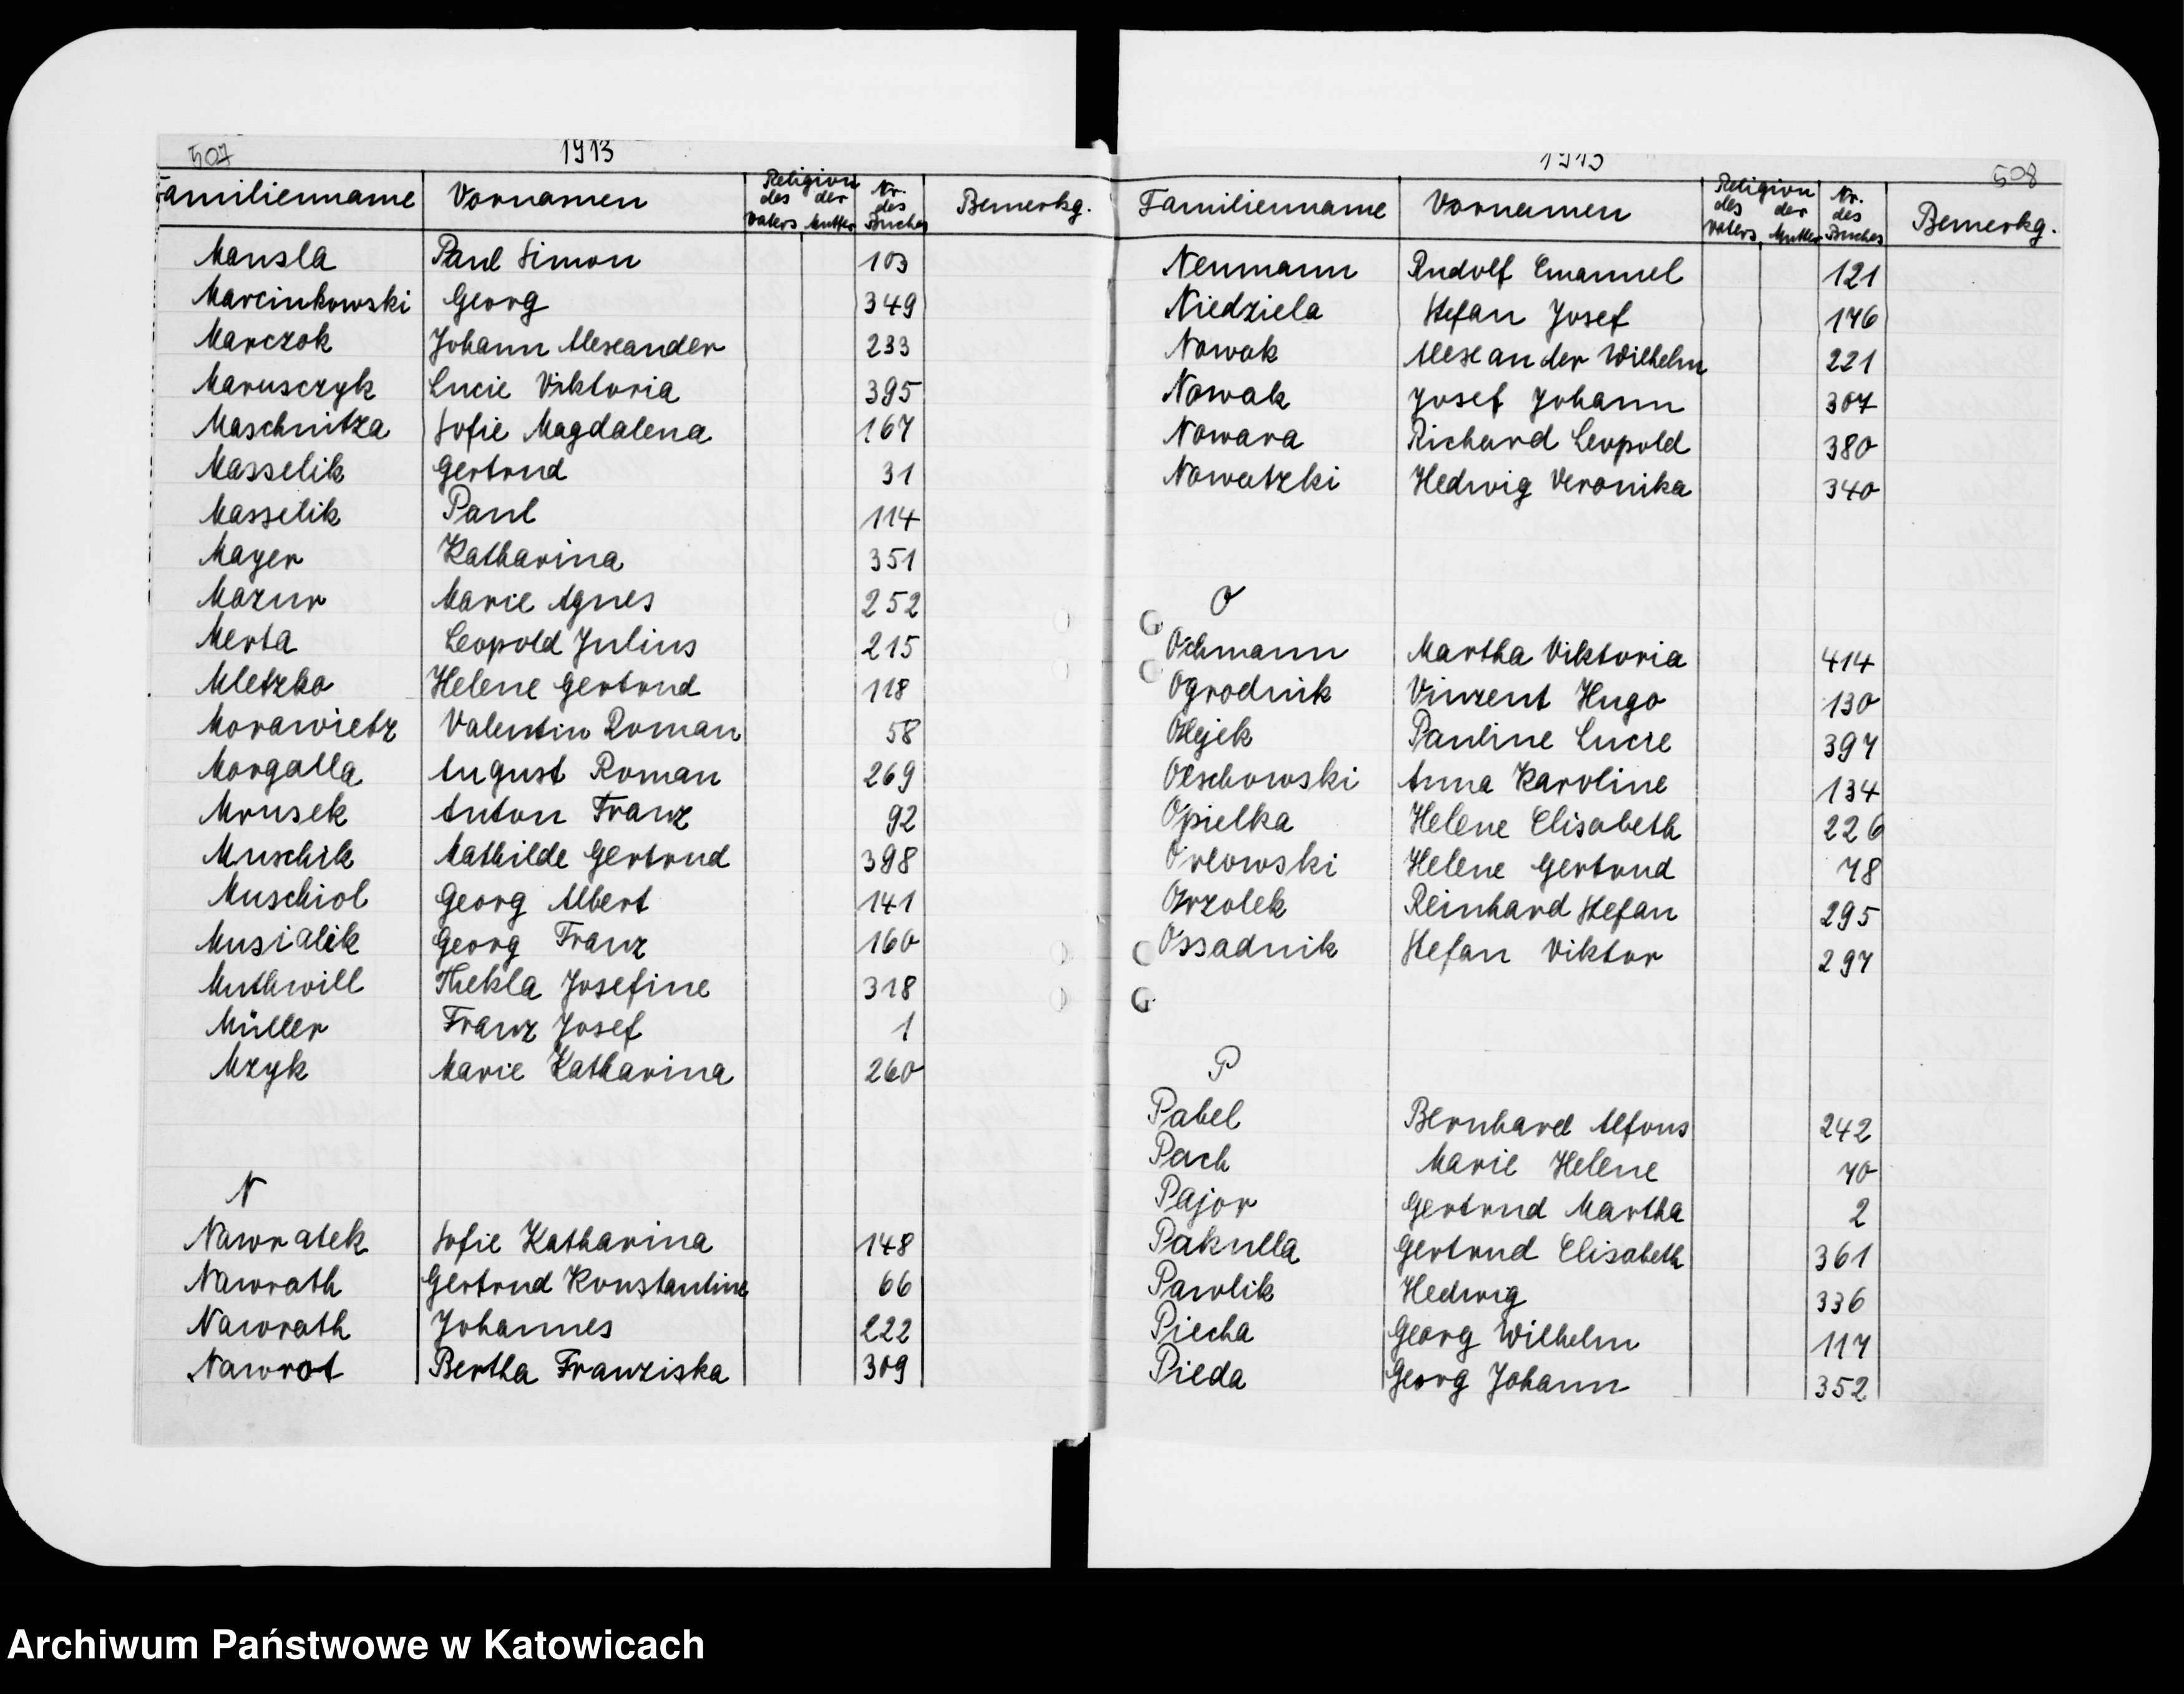 507
1913
Familienname Vornamen Religion des Vaters der Mutter Nr. des Buches Bemerkg.
Mansla Paul Simon 103
Marcinkowski Georg 349
Marczok Johann Alexander 233
Marusczyk Lucie Viktoria 395
Maschnitza Sofie Magdalena 167
Masselik Gertrud 31
Masselik Paul 114
Mayer Katharina 351
Mazur Marie Agnes 252
Merta Leopold Julius 215
Mletzko Helene Gertrud 118
Morawietz Valentin Roman 58
Morgalla August Roman 269
Mrusek Anton Franz 92
Muschik Mathilde Gertrud 398
Muschiol Georg Albert 141
Musialik Georg Franz 160
Muthwill Thekla Josefine 318
Müller Franz Josef 1
Mzyk Marie Katharina 260
N
Nawratek Sofie Katharina 148
Nawrath Gertrud Konstantine 66
Nawrath Johannes 222
Nawrot Bertha Franziska 309
1913
508
Familienname Vornamen Religion des Vaters der Mutter Nr. des Buches Bemerkg.
Neumann Rudolf Emanuel 121
Niedziela Stefan Josef 146
Nowak Alexander Wilhelm 221
Nowak Josef Johann 307
Nowara Richard Leopold 380
Nowatzki Hedwig Veronika 340
O
Ochmann Martha Viktoria 414
Ogrodnik Vinzent Hugo 130
Olejek Pauline Lucie 397
Olschowski Anna Karoline 134
Opielka Helene Elisabeth 226
Orlowski Helene Gertrud 78
Orzolek Reinhard Stefan 295
Ossadnik Stefan Viktor 297
P
Pabel Bernhard Alfons 242
Pach Marie Helene 70
Pajor Gertrud Martha 2
Pakulla Gertrud Elisabeth 361
Pawlik Hedwig 336
Piecha Georg Wilhelm 117
Pieda Georg Johann 352
Archiwum Państwowe w Katowicach